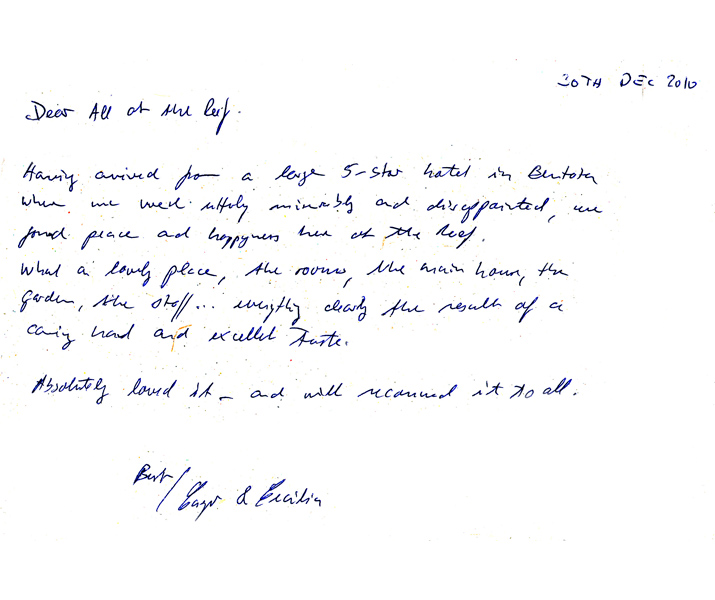 30TH DEC 2010
Dear All at the Reef.
Having arrived from a large 5-star hotel in Bentota
where we were utterly miserably and disappointed, we
found peace and happyness here at the Reef.
What a lovely place, the rooms, the main house, the
garden, the staff... everything clearly the result of a
caring hand and excellent taste.
Absolutely loved it - and will recommend it to all.
Best/
& Cecilia